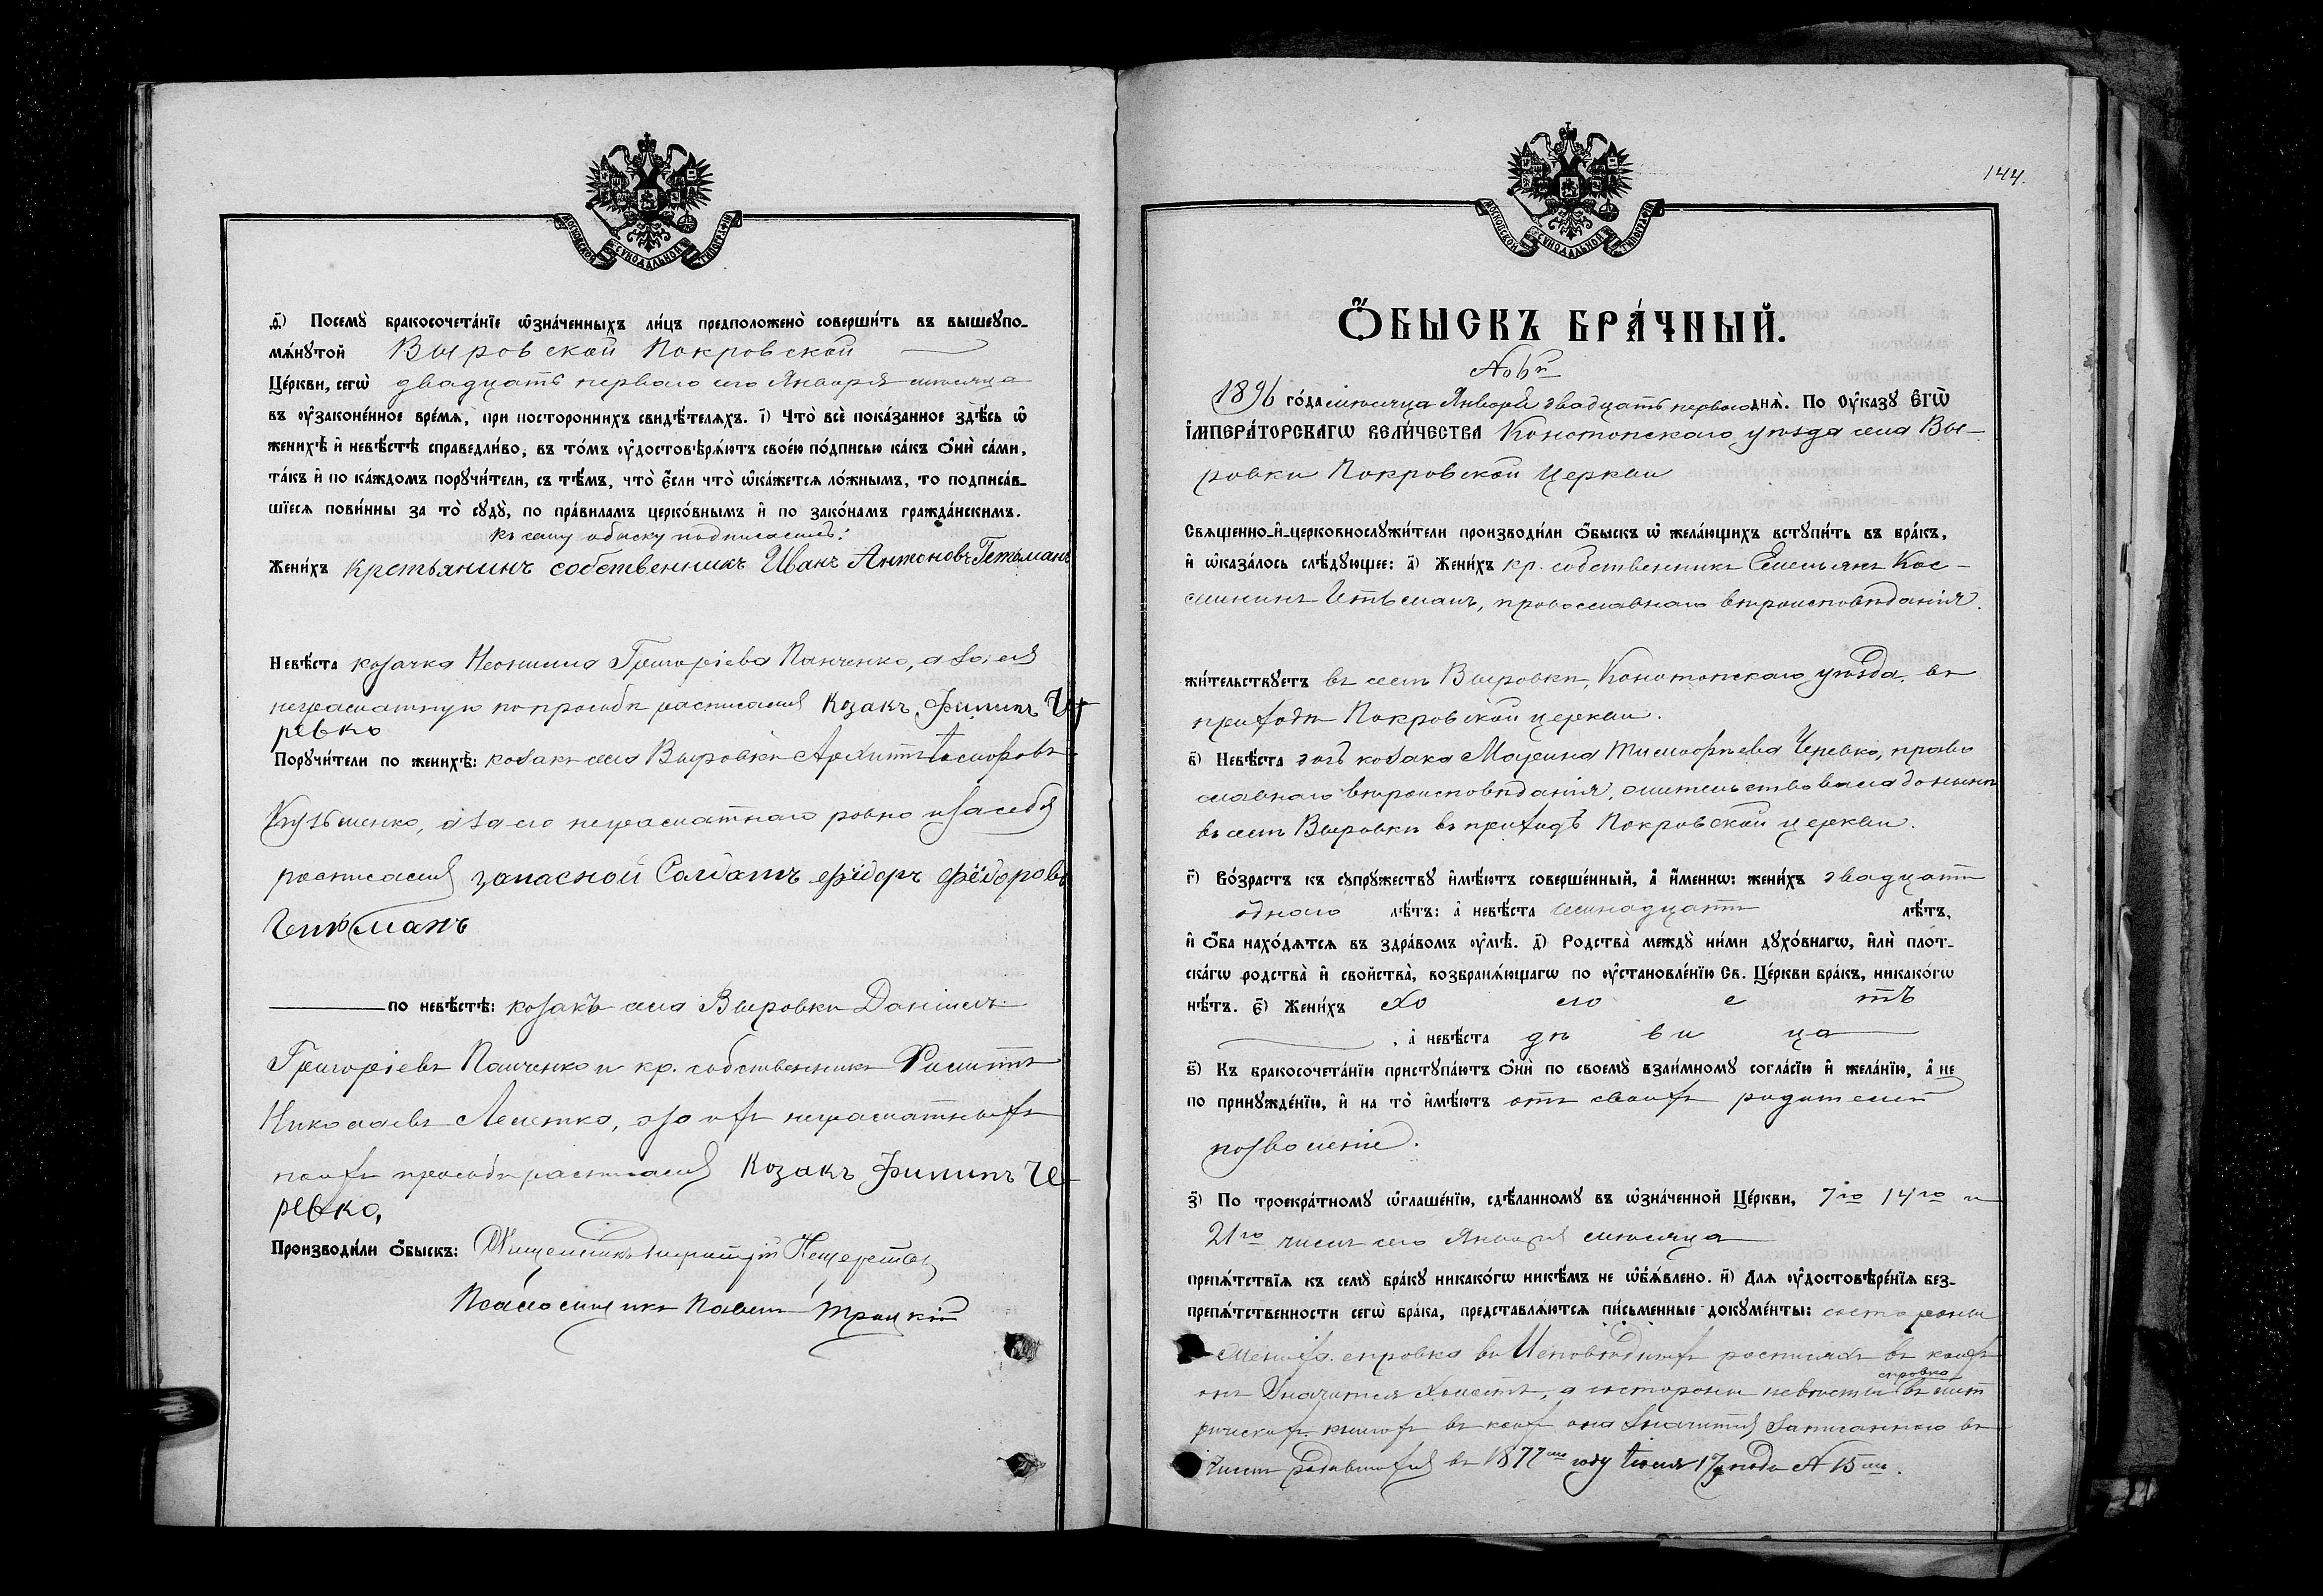 МОСКОВСКОЙ СѴНОДАЛЬНОЙ ТИПОГРАФІИ
д҃) Посемꙋ̀ бракосочета́нїе ѡ҆зна́ченныхъ ли́цъ предположено̀ соверши́ть въ вышеꙋпо-
мѧ́нꙋтой Выровской Покровской
Це́ркви, сегѡ̀ двадцать первого сего Января месяца
въ ᲂу҆законе́нное вре́мѧ, при посторо́ннихъ свидѣ́телѧхъ. і҃) Что̀ всѐ пока́занное здѣ́сь ѡ҆
женихѣ̀ и҆ невѣ́стѣ справедли́во, въ то́мъ ᲂу҆достовѣрѧ́ютъ свое́ю по́дписью ка́къ ѻ҆нѝ са́ми,
та́къ и҆ по ка́ждомъ порꙋчи́тели, съ тѣ́мъ, что̀ є҆́сли что̀ ѡ҆ка́жетсѧ ло́жнымъ, то подписа́в-
шїесѧ пови́нны за то̀ сꙋдꙋ̀, по пра́виламъ церко́внымъ и҆ по зако́намъ гражда́нскимъ.
Къ сему обыску подписались:
Жени́хъ крстьянинъ собственникъ Иванъ Антоновъ Гетьманъ
Невѣ́ста козачка Неонила Григоріева Панченко, а за нея
неграматную по просьбѣ расписался Козакъ Филипъ Че
ревко
Порꙋчи́тели по женихѣ̀: козакъ села Выровки Архипъ
Кузьменко, а за его неграматнаго ровно и за себя
росписался запасной Солдатъ Фёдоръ Фёдоровъ
Гетьманъ
по невѣ́стѣ: козакъ села Выровки Даніилъ
Григоріевъ Панченко и кр. собственникъ Филиппъ
Николаевъ, а за ихъ неграматныхъ
по ихъ просьбѣ расписался Козакъ Филипъ Че-
ревко,
Производи́ли ѻ҆́быскъ: Священникъ Димитрій
Псаломщикъ Павелъ Троцкій
144.
МОСКОВСКОЙ СѴНОДАЛЬНОЙ ТИПОГРАФІИ
Ѻ҆́БЫСКЪ БРА́ЧНЫЙ.
№ 6й
1896 го́да месяца Января двадцать первого днѧ̀. По ᲂу҆ка́зꙋ Є҆ГѠ̀
І҆МПЕРА́ТОРСКАГѠ ВЕЛИ́ЧЕСТВА Конотопскаго уѣзда села Вы-
ровки Покровской Церкви
Свѧще́нно-и҆-церковнослꙋжи́тели производи́ли ѻ҆́быскъ ѡ҆ жела́ющихъ встꙋпи́ть въ бра́къ,
и҆ ѡ҆каза́лось слѣ́дꙋющее: а҃) Жени́хъ кр. собственникъ Емельянъ Кос-
минъ Гетьманъ, православнаго вѣроисповѣданія.
жи́тельствꙋетъ въ селѣ Выровки, Конотопскаго уѣзда, въ
приходѣ Покровской церкви.
в҃) Невѣ́ста дочь козака Тимофѣева Черевко, право
славнаго вѣроисповѣданія, жительствовала донынѣ
въ селѣ Выровки въ приходѣ Покровской церкви.
г҃) Во́зрастъ къ сꙋпрꙋ́жествꙋ и҆мѣ́ютъ соверше́нный, а҆ и҆́менно: жени́хъ двадцати
одного лѣ́тъ: а҆ невѣ́ста семнадцати лѣ́тъ,
и҆ ѻ҆́ба нахо́дѧтсѧ въ здра́вомъ ᲂу҆мѣ̀. д҃) Родства̀ междꙋ̀ ни́ми дꙋхо́внагѡ, и҆лѝ плот-
ска́гѡ родства̀ и҆ сво́йства, возбранѧ́ющагѡ по ᲂу҆становле́нїю Св. Це́ркви бра́къ, никако́гѡ
нѣ́тъ. є҃) Жени́хъ хо ло с тъ
, а҆ невѣ́ста дѣ ви ца
ѕ҃) Къ бракосочета́нїю пристꙋпа́ютъ ѻ҆нѝ по своемꙋ̀ взаи́мномꙋ согла́сїю и҆ жела́нїю, а҆ не
по принꙋжде́нїю, и҆ на то̀ и҆мѣ́ютъ отъ своихъ родителей
позволеніе.
з҃) По троекра́тномꙋ ѡ҆глаше́нїю, сдѣ́ланномꙋ въ ѡ҆зна́ченной Це́ркви, 7го 14го и
21го чиселъ сего Января месяца
препѧ́тствїѧ къ семꙋ̀ бра́кꙋ никако́гѡ никѣ́мъ не ѡ҆б̾ѧ́влено. и҃) Длѧ ᲂу҆достовѣре́нїѧ без-
препѧ́тственности сегѡ̀ бра́ка, представлѧ́ютсѧ пи́сьменные докꙋме́нты: со стороны
жениха справка въ Исповѣдныхъ росписяхъ въ коихъ
онъ значится холостъ, а со стороны невѣсты справка въ мет
рическихъ книгахъ въ коихъ она значится записанною въ
числѣ родившихся въ 1877мъ году Іюля 17 подъ № 15мъ.